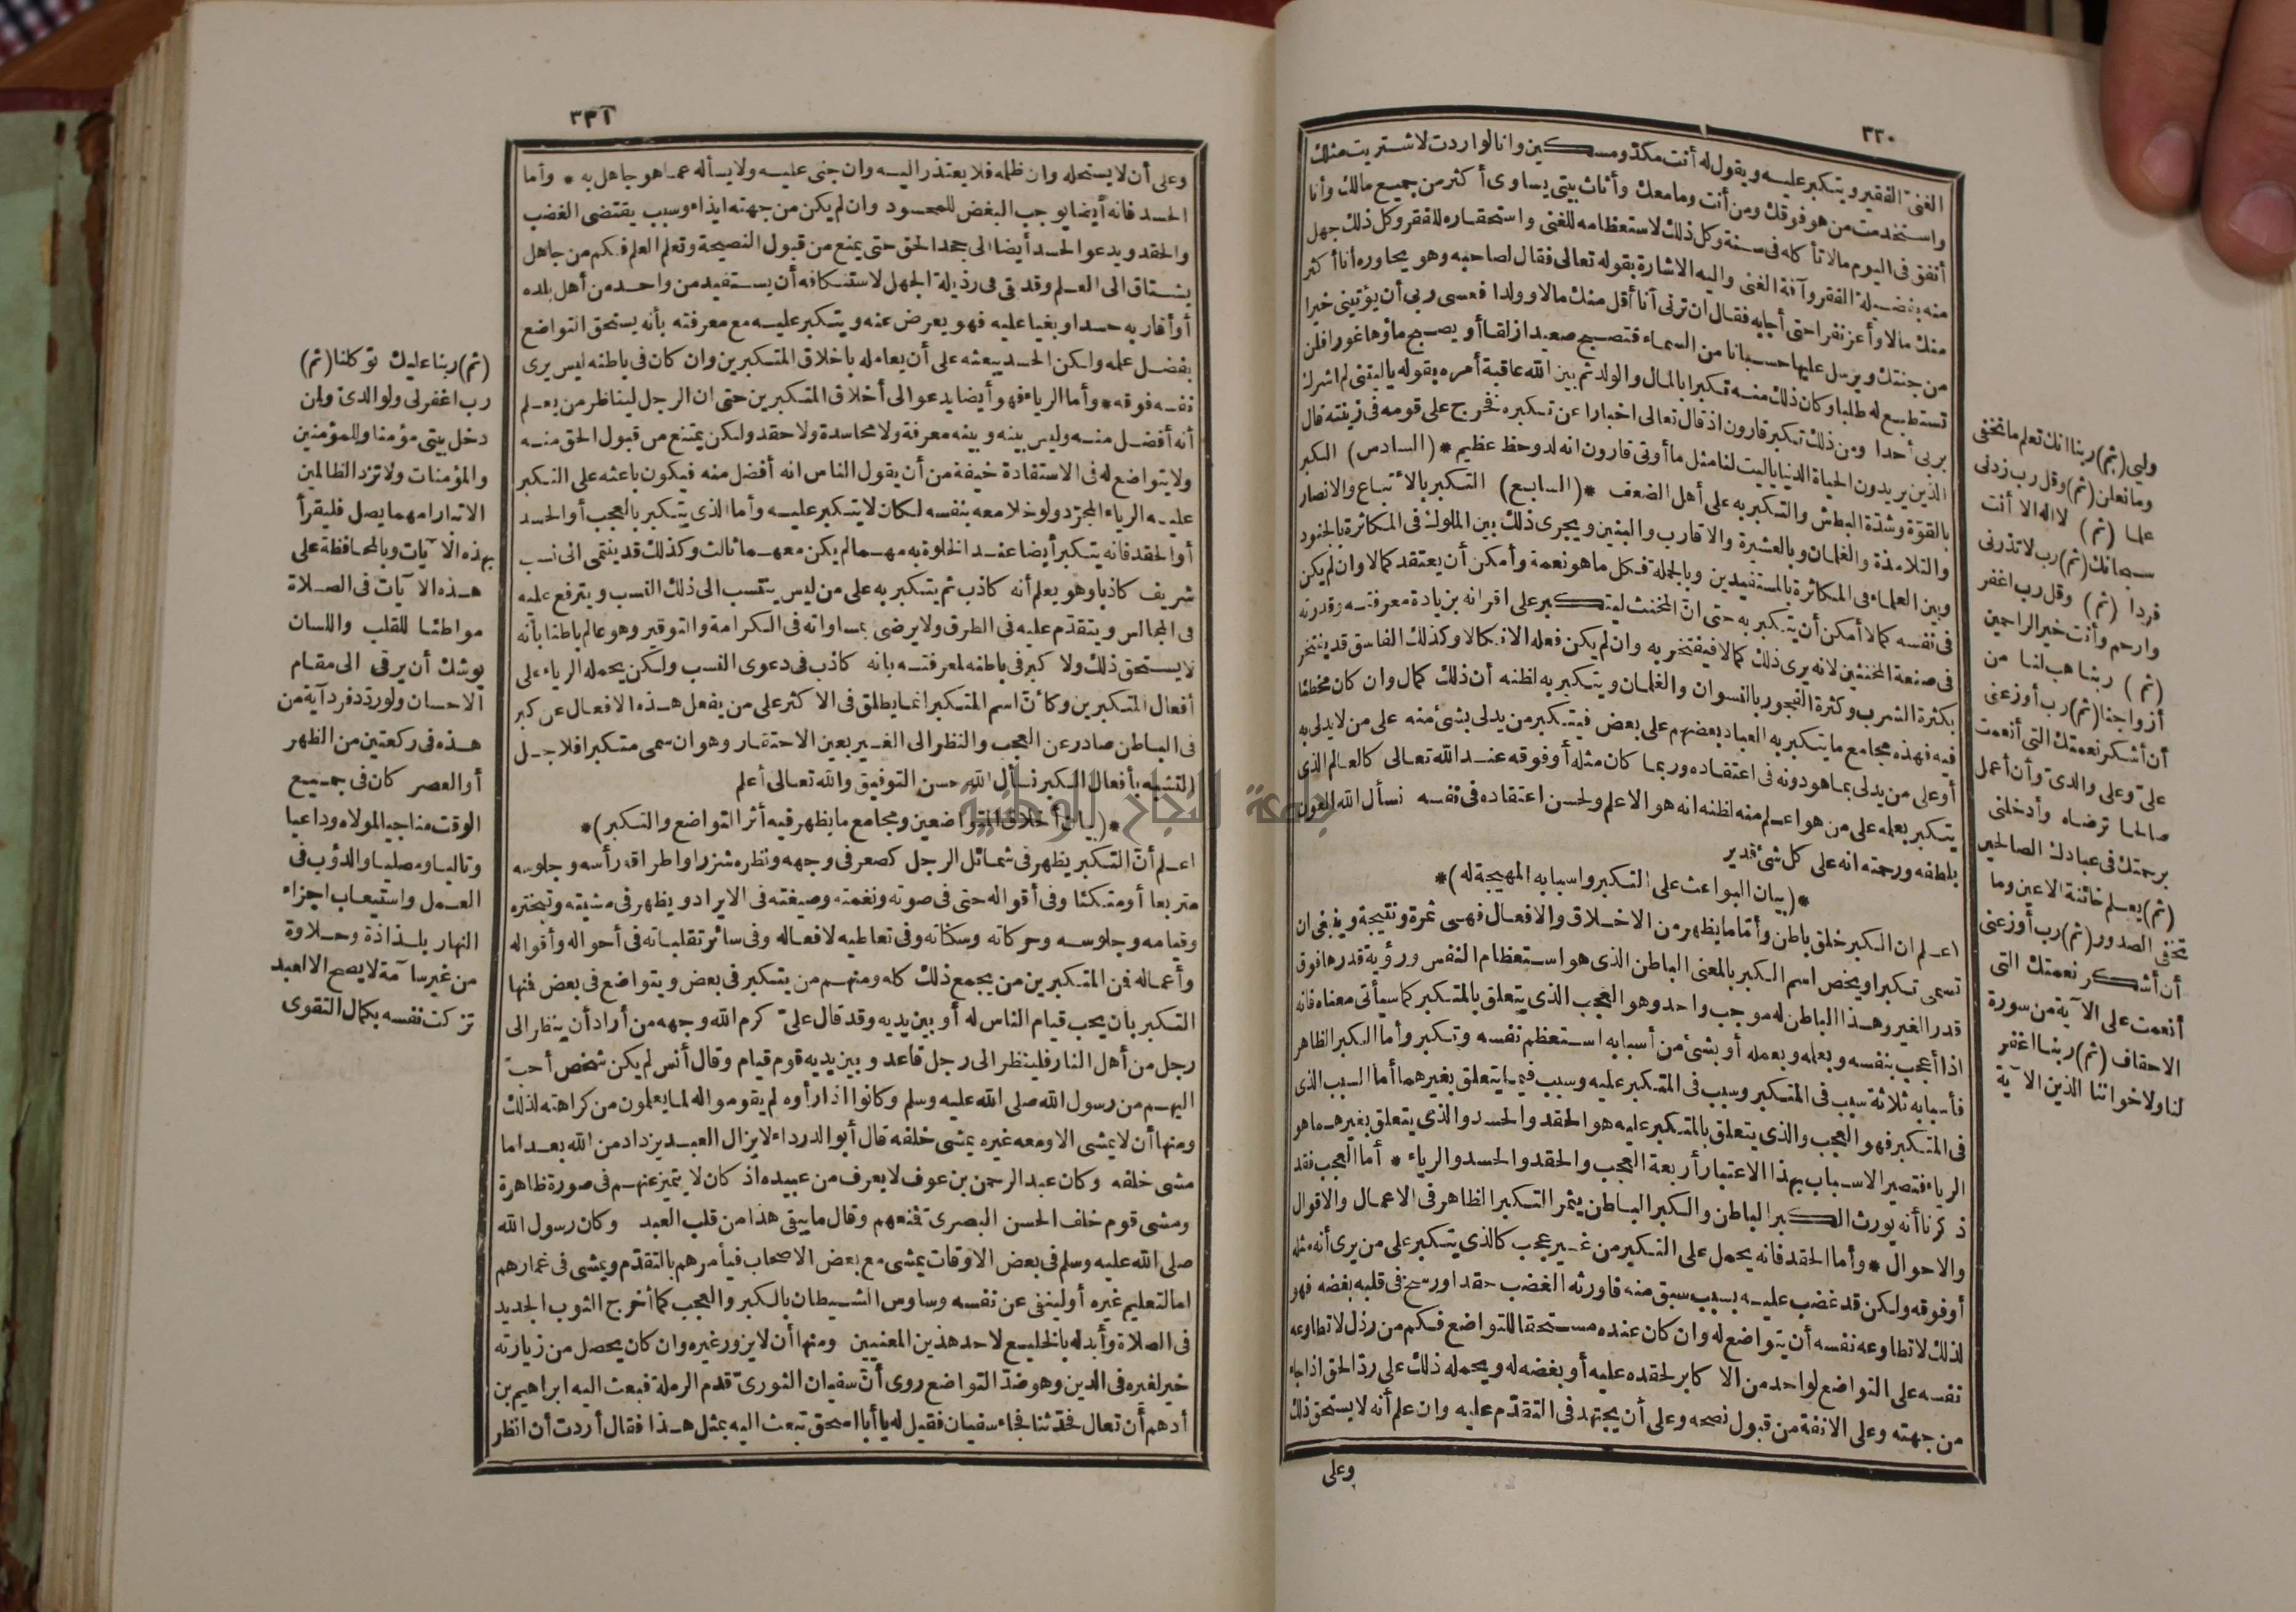 ٣٣٠
الغنى الفقير ويتكبر عليه ويقول له أنت مكد ومسكين وانا لو اردت لاشتريت مثلك
واستخدمت من هو فوقك ومن أنت وما معك وأثاث بيتى يساوى أكثر من جميع مالك وأنا
أنفق فى اليوم مالا تأكله فى سنة وكل ذلك لاستعظامه للغنى واستحقاره للفقر وكل ذلك جهل
منه بفضيلة الفقر وآفة الغنى واليه الاشارة بقوله تعالى فقال لصاحبه وهو يحاوره أنا أكثر
منك مالا وأعز نفرا حتى أجابه فقال ان ترنى أنا أقل منك مالا وولدا فعسى ربى أن يؤتينى خيرا
من جنتك ويرسل عليها حسبانا من السماء فتصبح صعيدا زلقا أو يصبح ماؤها غورا فلن
تستطيع له طلبا وكان ذلك منه تكبرا بالمال والولد ثم بين الله عاقبة أمره بقوله ياليتنى لم اشرك
بربى أحدا ومن ذلك تكبر قارون اذ قال تعالى اخبارا عن تكبره فخرج على قومه فى زينته قال
الذين يريدون الحياة الدنيا ياليت لنا مثل ما أوتى قارون انه لذو حظ عظيم * (السادس) الكبر
بالقوّة وشدّة البطش والتكبر به على أهل الضعف * (السابع) التكبر بالأتباع والانصار
والتلامذة والغلمان وبالعشيرة والاقارب والبنين ويجرى ذلك بين الملوك فى المكاثرة بالجنود
وبين العلماء فى المكاثرة بالمستفيدين وبالجملة فكل ما هو نعمة وأمكن أن يعتقد كمالا وان لم يكن
فى نفسه كمالا أمكن أن يتكبر به حتى انّ المخنث ليتكبر على اقرانه بزيادة معرفته وقدرته
فى صنعة المخنثين لانه يرى ذلك كمالا فيفتخر به وان لم يكن فعله الا نكالا وكذلك الفاسق قد يفتخر
بكثرة الشرب وكثرة الفجور بالنسوان والغلمان ويتكبر به لظنه أن ذلك كمال وان كان مخطئا
فيه فهذه مجامع ما يتكبر به العباد بعضهم على بعض فيتكبر من يدلى بشئ منه على من لا يدلى به
أو على من يدلى بما هو دونه فى اعتقاده وربما كان مثله أو فوقه عند الله تعالى كالعالم الذى
يتكبر بعلمه على من هو اعلم منه لظنه انه هو الاعلم ولحسن اعتقاده فى نفسه نسأل الله العون
بلطفه ورحمته انه على كل شئ قدير
*(بيان البواعث على التكبر واسبابه المهيجة له)*
اعلم ان الكبر خلق باطن وأمّا ما يظهر من الاخلاق والافعال فهى ثمرة ونتيجة وينبغى ان
تسمى تكبرا ويخص اسم الكبر بالمعنى الباطن الذى هو استعظام النفس ورؤية قدرها فوق
قدر الغير وهذا الباطن له موجب واحد وهو العجب الذى يتعلق بالمتكبر كما سيأتى معناه فانه
اذا أعجب بنفسه وبعلمه وبعمله أو بشئ من أسبابه استعظم نفسه وتكبر وأما الكبر الظاهر
فأسبابه ثلاثة سبب فى المتكبر وسبب فى المتكبر عليه وسبب فيما يتعلق بغيرهما أما السبب الذى
فى المتكبر فهو العجب والذى يتعلق بالمتكبر عليه هو الحقد والحسد والذى يتعلق بغيرهما هو
الرياء فتصير الاسباب بهذا الاعتبار أربعة العجب والحقد والحسد والرياء * أما العجب فقد
ذكرنا أنه يورث الكبر الباطن والكبر الباطن يثمر التكبر الظاهر فى الاعمال والاقوال
والاحوال * وأما الحقد فانه يحمل على التكبر من غير عجب كالذى يتكبر على من يرى أنه مثله
أو فوقه ولكن قد غضب عليه بسبب سبق منه فاورثه الغضب حقدا ورسخ فى قلبه بغضه فهو
لذلك لا تطاوعه نفسه أن يتواضع له وان كان عنده مستحقا للتواضع فكم من رذل لا تطاوعه
نفسه على التواضع لواحد من الاكابر لحقده عليه أو بغضه له ويحمله ذلك على ردّ الحق اذا جاء
من جهته وعلى الانفة من قبول نصحه وعلى أن يجتهد فى التقدّم عليه وان علم أنه لا يستحق ذلك
وعلى
ولى (ثم) ربنا انك تعلم ما نخفى
وما نعلن (ثم) وقل رب زدنى
علما (ثم) لا اله الا أنت
سبحانك (ثم) رب لا تذرنى
فردا (ثم) وقل رب اغفر
وارحم وأنت خير الراحمين
(ثم) ربنا هب لنا من
أزواجنا (ثم) رب أوزعنى
أن أشكر نعمتك التى أنعمت
علىّ وعلى والدىّ وأن أعمل
صالحا ترضاه وأدخلنى
برحمتك فى عبادك الصالحين
(ثم) يعلم خائنة الاعين وما
تخفى الصدور (ثم) رب أوزعنى
أن أشكر نعمتك التى
أنعمت على الآية من سورة
الاحقاف (ثم) ربنا اغفر
لنا ولاخواننا الذين الآية
٣٣١
وعلى أن لا يستحله وان ظلمه فلا يعتذر اليه وان جنى عليه ولا يسأله عما هو جاهل به * وأما
الحسد فانه أيضا يوجب البغض للمحسود وان لم يكن من جهته ايذاء وسبب يقتضى الغضب
والحقد ويدعو الحسد أيضا الى جحد الحق حتى يمنع من قبول النصيحة وتعلم العلم فكم من جاهل
يشتاق الى العلم وقد بقى فى رذيلة الجهل لاستنكافه أن يستفيد من واحد من أهل بلده
أو أقاربه حسدا وبغيا عليه فهو يعرض عنه ويتكبر عليه مع معرفته بأنه يستحق التواضع
بفضل علمه ولكن الحسد يبعثه على أن يعامله باخلاق المتكبرين وان كان فى باطنه ليس يرى
نفسه فوقه * وأما الرياء فهو أيضا يدعو الى أخلاق المتكبرين حتى ان الرجل ليناظر من يعلم
أنه أفضل منه وليس بينه وبينه معرفة ولا محاسدة ولا حقد ولكن يمتنع من قبول الحق منه
ولا يتواضع له فى الاستفادة خيفة من أن يقول الناس انه أفضل منه فيكون باعثه على التكبر
عليه الرياء المجرّد ولو خلا معه بنفسه لكان لا يتكبر عليه وأما الذى يتكبر بالعجب أو الحسد
أو الحقد فانه يتكبر أيضا عند الخلوة به مهما لم يكن معهما ثالث وكذلك قد ينتمى الى نسب
شريف كاذبا وهو يعلم أنه كاذب ثم يتكبر به على من ليس ينتسب الى ذلك النسب ويترفع عليه
فى المجالس ويتقدّم عليه فى الطرق ولا يرضى بمساواته فى الكرامة والتوقير وهو عالم باطنا بأنه
لا يستحق ذلك ولا كبر فى باطنه لمعرفته بانه كاذب فى دعوى النسب ولكن يحمله الرياء على
أفعال المتكبرين وكأنّ اسم المتكبر انما يطلق فى الاكثر على من يفعل هذه الافعال عن كبر
فى الباطن صادر عن العجب والنظر الى الغير بعين الاحتقار وهو ان سمى متكبرا فلاجل
التشبه بأفعال الكبر نسأل الله حسن التوفيق والله تعالى أعلم
*(بيان أخلاق المتواضعين ومجامع ما يظهر فيه أثر التواضع والتكبر)*
اعلم أنّ التكبر يظهر فى شمائل الرجل كصعر فى وجهه ونظره شزرا واطراقه رأسه وجلوسه
متربعا أو متكئا وفى أقواله حتى فى صوته ونغمته وصيغته فى الايراد ويظهر فى مشيته وتبختره
وقيامه وجلوسه وحركاته وسكناته وفى تعاطيه لافعاله وفى سائر تقلباته فى أحواله وأقواله
وأعماله فمن المتكبرين من يجمع ذلك كله ومنهم من يتكبر فى بعض ويتواضع فى بعض فمنها
التكبر بان يحب قيام الناس له أو بين يديه وقد قال علىّ كرم الله وجهه من أراد أن ينظر الى
رجل من أهل النار فلينظر الى رجل قاعد وبين يديه قوم قيام وقال أنس لم يكن شخص أحبّ
اليهم من رسول الله صلى الله عليه وسلم وكانوا اذا رأوه لم يقوموا له لما يعلمون من كراهته لذلك
ومنها أن لا يمشى الا ومعه غيره يمشى خلفه قال أبو الدرداء لا يزال العبد يزداد من الله بعدا ما
مشى خلفه وكان عبد الرحمن بن عوف لا يعرف من عبيده اذ كان لا يتميز عنهم فى صورة ظاهرة
ومشى قوم خلف الحسن البصرىّ فمنعهم وقال ما يبقى هذا من قلب العبد وكان رسول الله
صلى الله عليه وسلم فى بعض الاوقات يمشى مع بعض الاصحاب فيأمرهم بالتقدّم ويمشى فى غمارهم
اما لتعليم غيره أو لينفى عن نفسه وساوس الشيطان بالكبر والعجب كما أخرج الثوب الجديد
فى الصلاة وأبدله بالخليع لاحد هذين المعنيين ومنها أن لا يزور غيره وان كان يحصل من زيارته
خير لغيره فى الدين وهو ضدّ التواضع روى أنّ سفيان الثورىّ قدم الرملة فبعث اليه ابراهيم بن
أدهم أن تعال فحدّثنا فجاء سفيان فقيل له يا أبا اسحق تبعث اليه بمثل هذا فقال أردت أن انظر
(ثم) ربنا عليك توكلنا (ثم)
رب اغفر لى ولوالدىّ ولمن
دخل بيتى مؤمنا وللمؤمنين
والمؤمنات ولا تزد الظالمين
الا تبارا مهما يصل فليقرأ
بهذه الآيات وبالمحافظة على
هذه الآيات فى الصلاة
مواطئا للقلب واللسان
يوشك أن يرقى الى مقام
الاحسان ولو ردّد فرد آية من
هذه فى ركعتين من الظهر
أو العصر كان فى جميع
الوقت مناجيا لمولاه وداعيا
وتاليا ومصليا والدؤب فى
العمل واستيعاب اجزاء
النهار بلذاذة وحلاوة
من غير سآمة لا يصح الا لعبد
تزكت نفسه بكمال التقوى
جامعة النجاح الوطنية